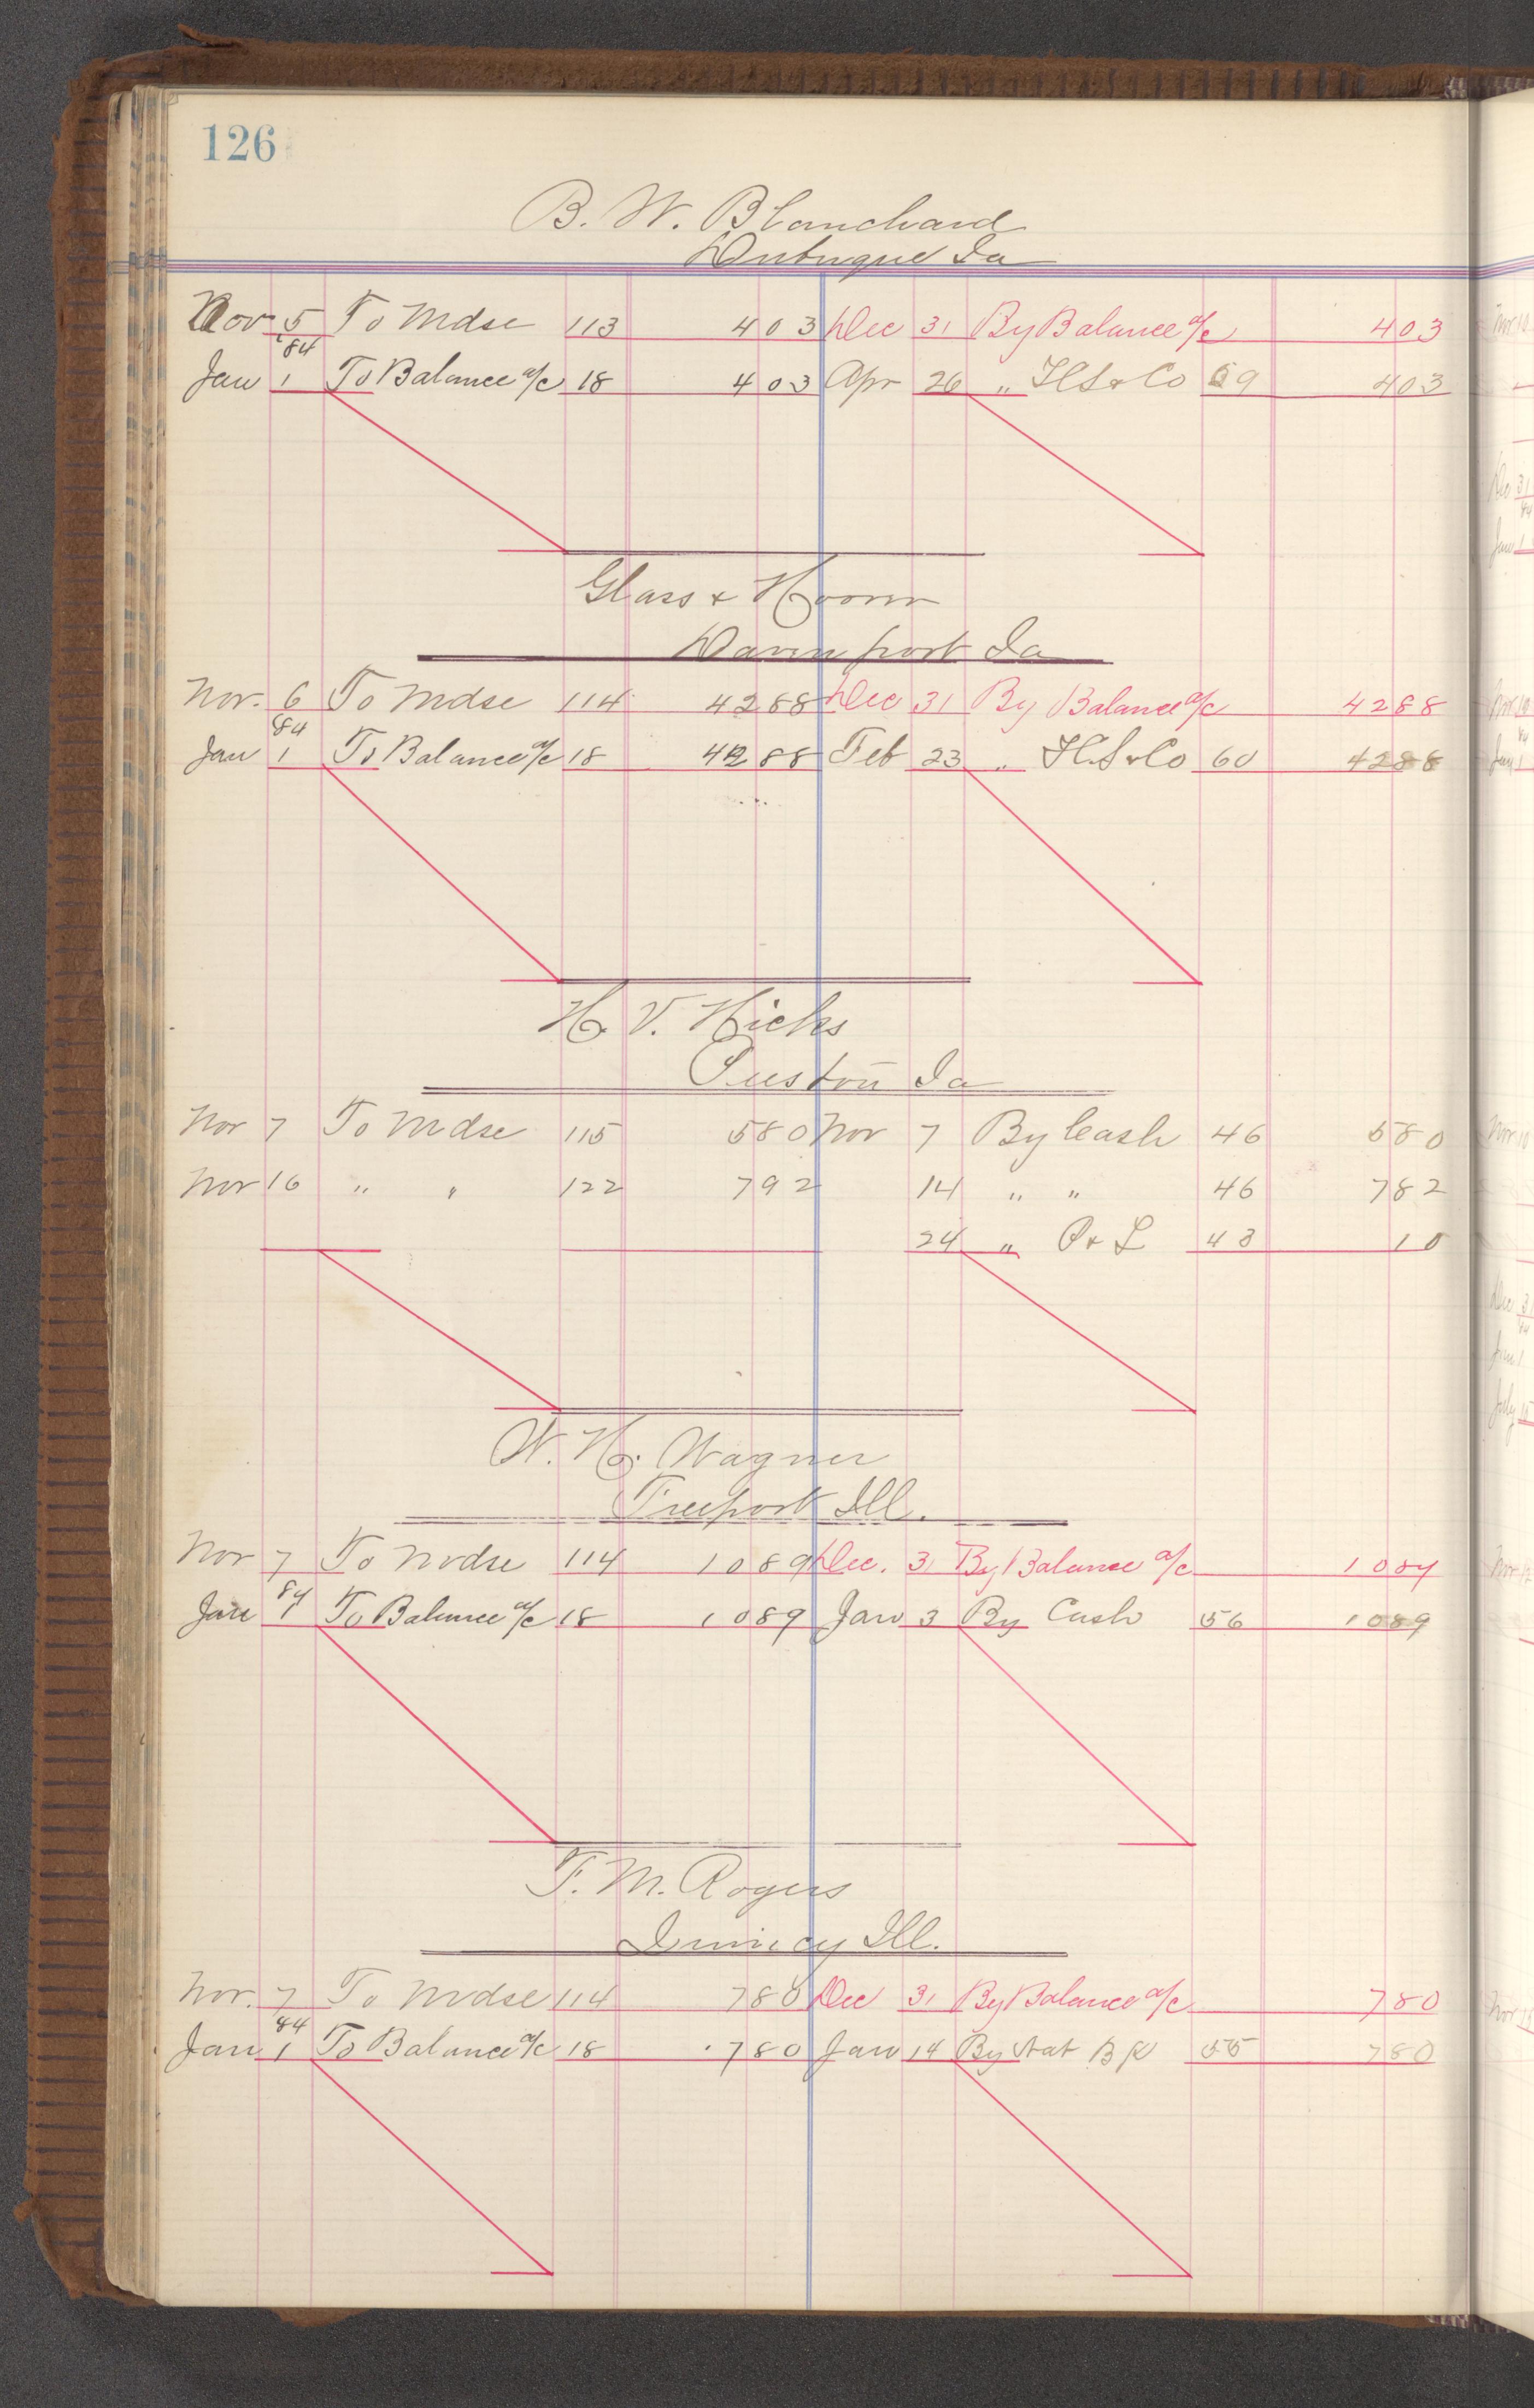 126
B. W. Blanchard
Dubuque Ia
Nov 5 To Mdse 113 403 Dec 31 By Balance a/c 403
84
Jan 1 To Balance a/c 18 403 Apr 26 " H S & Co 69 403
Glass & Hoover
Davenport Ia
Nov. 6 To Mdse 114 4288 Dec 31 By Balance a/c 4288
84
Jan 1 To Balance a/c 18 4288 Feb 23 " H S & Co 60 4288
H. V. Hicks
Ia
Nov 7 To Mdse 115 580 Nov 7 By Cash 46 580
Nov 16 " " 122 792 14 " " 46 782
24 " P & L 48 10
W. H. Wagner
Freeport Ill.
Nov 7 To Mdse 114 1089 Dec. 31 By Balance a/c 1089
84
Jan 1 To Balance a/c 18 1089 Jan 3 By Cash 56 1089
F. M. Rogers
Quincy Ill.
Nov. 7 To Mdse 114 780 Dec 31 By Balance a/c 780
84
Jan 1 To Balance a/c 18 780 Jan 14 By Nat B K 55 780